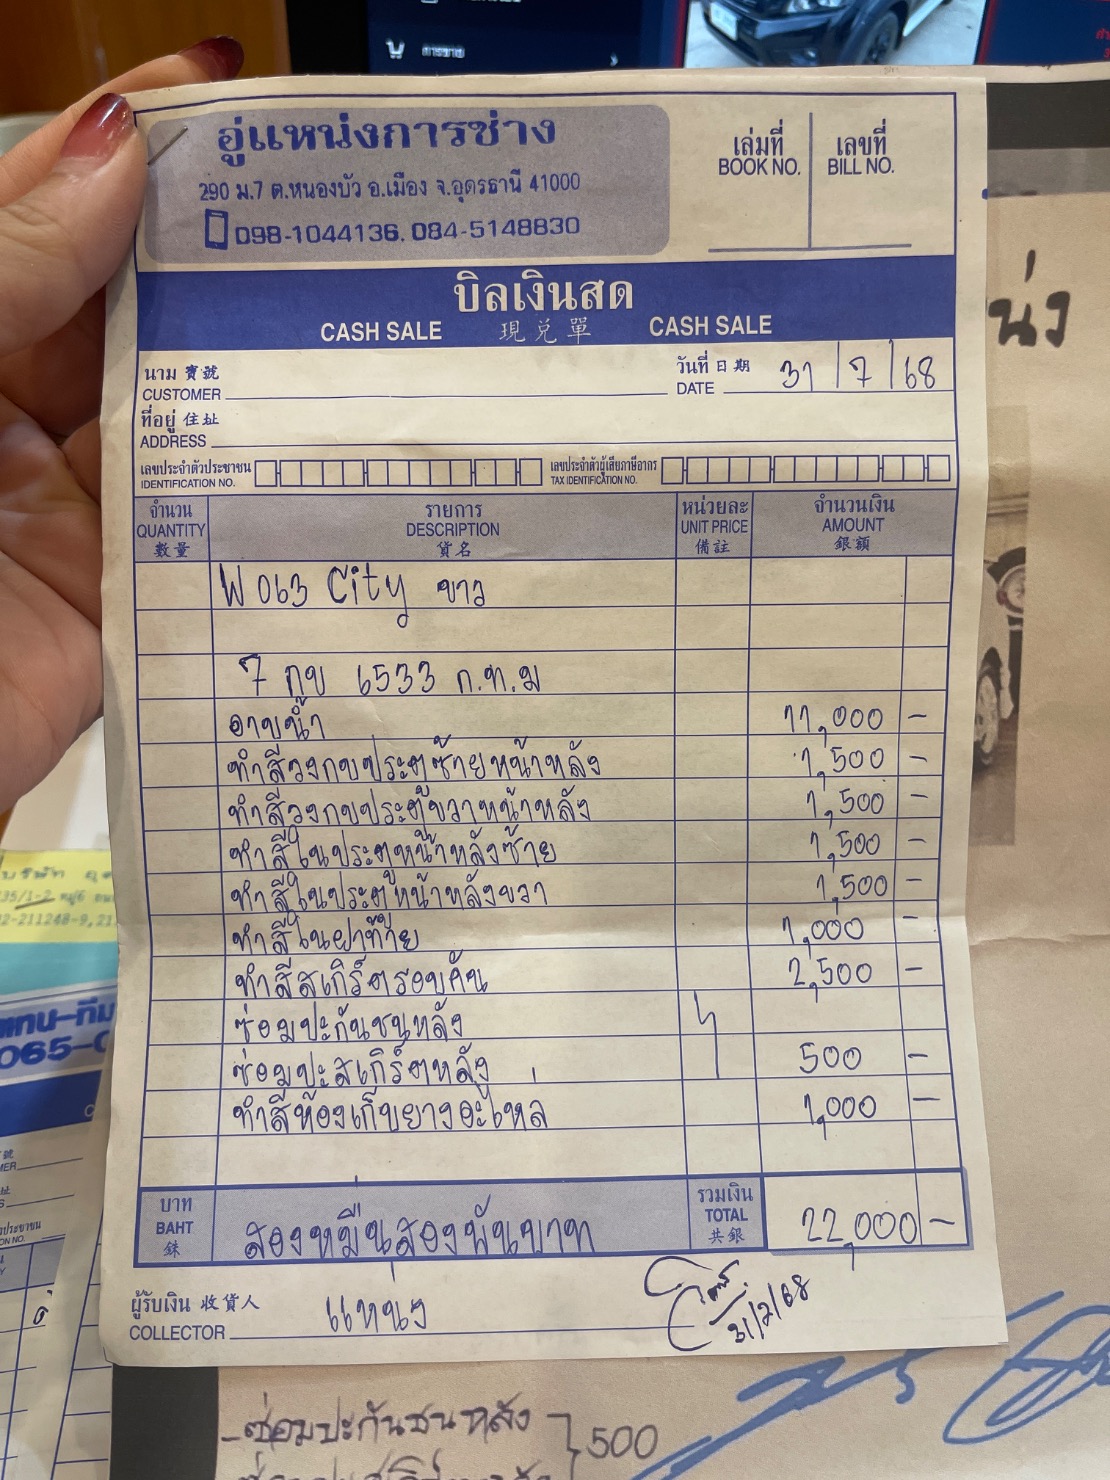 การขาย
อู่แหน่งการช่าง
290 ม.7 ต.หนองบัว อ.เมือง จ.อุดรธานี 41000
098-1044136, 084-5148830
เล่มที่ เลขที่
BOOK NO. BILL NO.
บิลเงินสด
CASH SALE 現兌單 CASH SALE
นาม 寶號 วันที่ 日期 31/7/68
CUSTOMER DATE
ที่อยู่ 住址
ADDRESS
เลขประจำตัวประชาชน เลขประจำตัวผู้เสียภาษีอากร
IDENTIFICATION NO. TAX IDENTIFICATION NO.
จำนวน รายการ หน่วยละ จำนวนเงิน
QUANTITY DESCRIPTION UNIT PRICE AMOUNT
數量 貨名 備註 銀額
W063 City ขาว
7 กข 6533 ก.ท.ม
อาบน้ำ 11,000 -
ทำสีวงกบประตูซ้ายหน้าหลัง 1,500 -
ทำสีวงกบประตูขวาหน้าหลัง 1,500 -
ทำสีในประตูหน้าหลังซ้าย 1,500 -
ทำสีในประตูหน้าหลังขวา 1,500 -
ทำสีในฝาท้าย 1,000 -
ทำสีสเกิร์ตรอบคัน 2,500 -
ซ่อมปะกันชนหลัง
ซ่อมปะสเกิร์ตหลัง 500 -
ทำสีห้องเก็บยางอะไหล่ 1,000 -
บาท รวมเงิน
BAHT สองหมื่นสองพันบาท TOTAL 22,000 -
銖 共銀
ผู้รับเงิน 收貨人 แหน่ง
COLLECTOR
31/7/68
น่ง
บริษัท
135/1-2 หมู่6
065-0
-ซ่อมปะกันชนหลัง 500